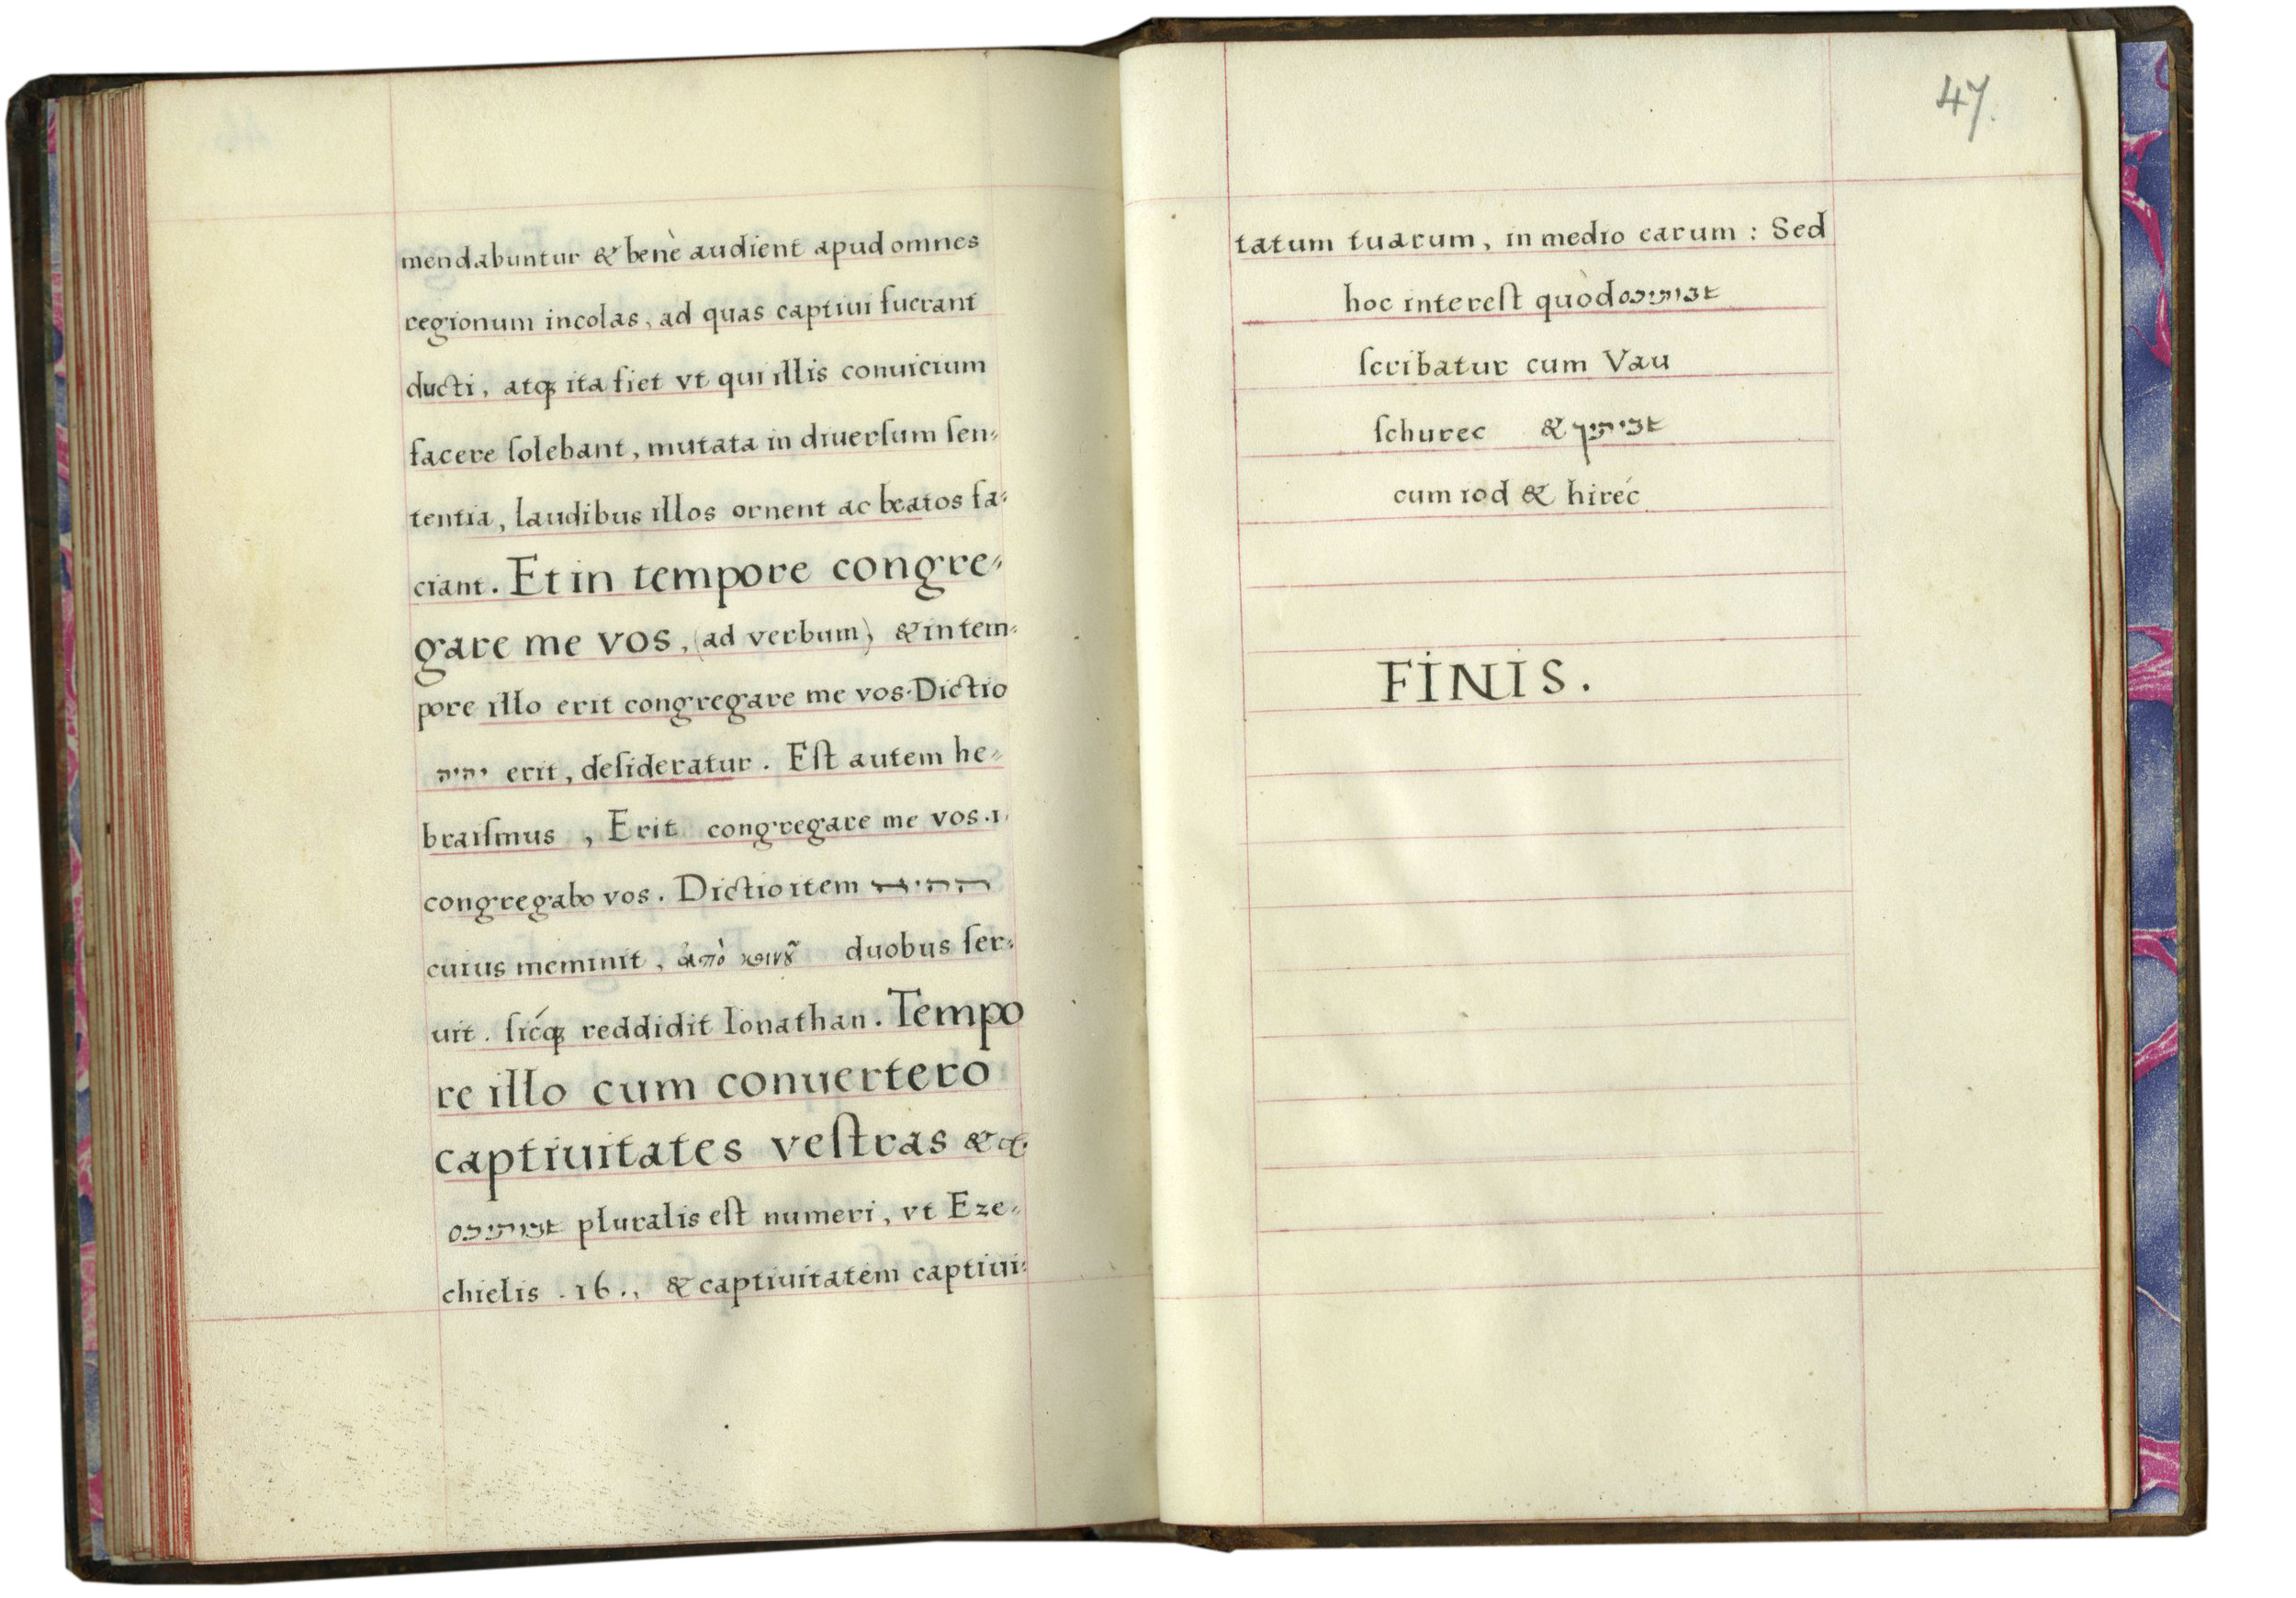 mendabuntur & benè audient apud omnes
regionum incolas, ad quas captiui fuerant
ducti, atqꝫ ita fiet vt qui illis conuicium
facere ſolebant, mutata in diuerſum ſen⸗
tentia, laudibus illos ornent ac beatos fa⸗
ciant. Et in tempore congre⸗
gare me vos, (ad verbum) & in tem⸗
pore illo erit congregare me vos. Dictio
יהיה erit, deſideratur. Eſt autem he⸗
braiſmus, Erit congregare me vos. i.
congregabo vos. Dictio item ההיא
cuius meminit, ἀπὸ duobus ſer⸗
uit. ſicqꝫ reddidit Ionathan. Tempo
re illo cum conuertero
captiuitates veſtras &c
שבותיכם pluralis eſt numeri, vt Eze⸗
chielis . 16., & captiuitatem captiui⸗
47.
tatum tuarum, in medio earum : Sed
hoc intereſt quòd שבותיכם
ſcribatur cum Vau
ſchurec & שביתיך
cum iod & hiréc
FINIS.